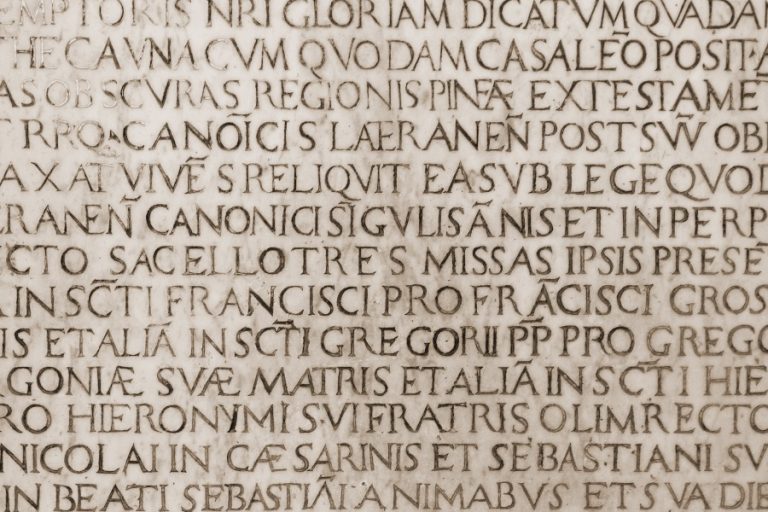 EMPTORIS NRI GLORIAM DICATVM QVADAM
HEC AVNA CVM QVODAM CASALEÕ POSITA
AS OBSCVRAS REGIONIS PINEÆ EX TESTAMĒ
T R PRO CANOÑICIS LAERANEÑ POST SVV̄ OBI
AXAT VIVĒS RELIQVIT EA SVB LEGE QVOD
ERANEÑ CANONICI SĪGVLIS ÃNIS ET IN PERP
ECTO SACELLO TRES MISSAS IPSIS PRESĒ
A IN SC̄TI FRANCISCI PRO FRÃCISCI GROS
IS ET ALIÃ IN SC̄TI GREGORII PP̄ PRO GREGO
GONIÆ SVÆ MATRIS ET ALIÃ IN SC̄TI HIE
RO HIERONYMI SVI FRATRIS OLIM RECTO
NICOLAI IN CÆSARINIS ET SEBASTIANI SV
IN BEATI SEBASTIÃI ANIMABVS ET SVA DIE